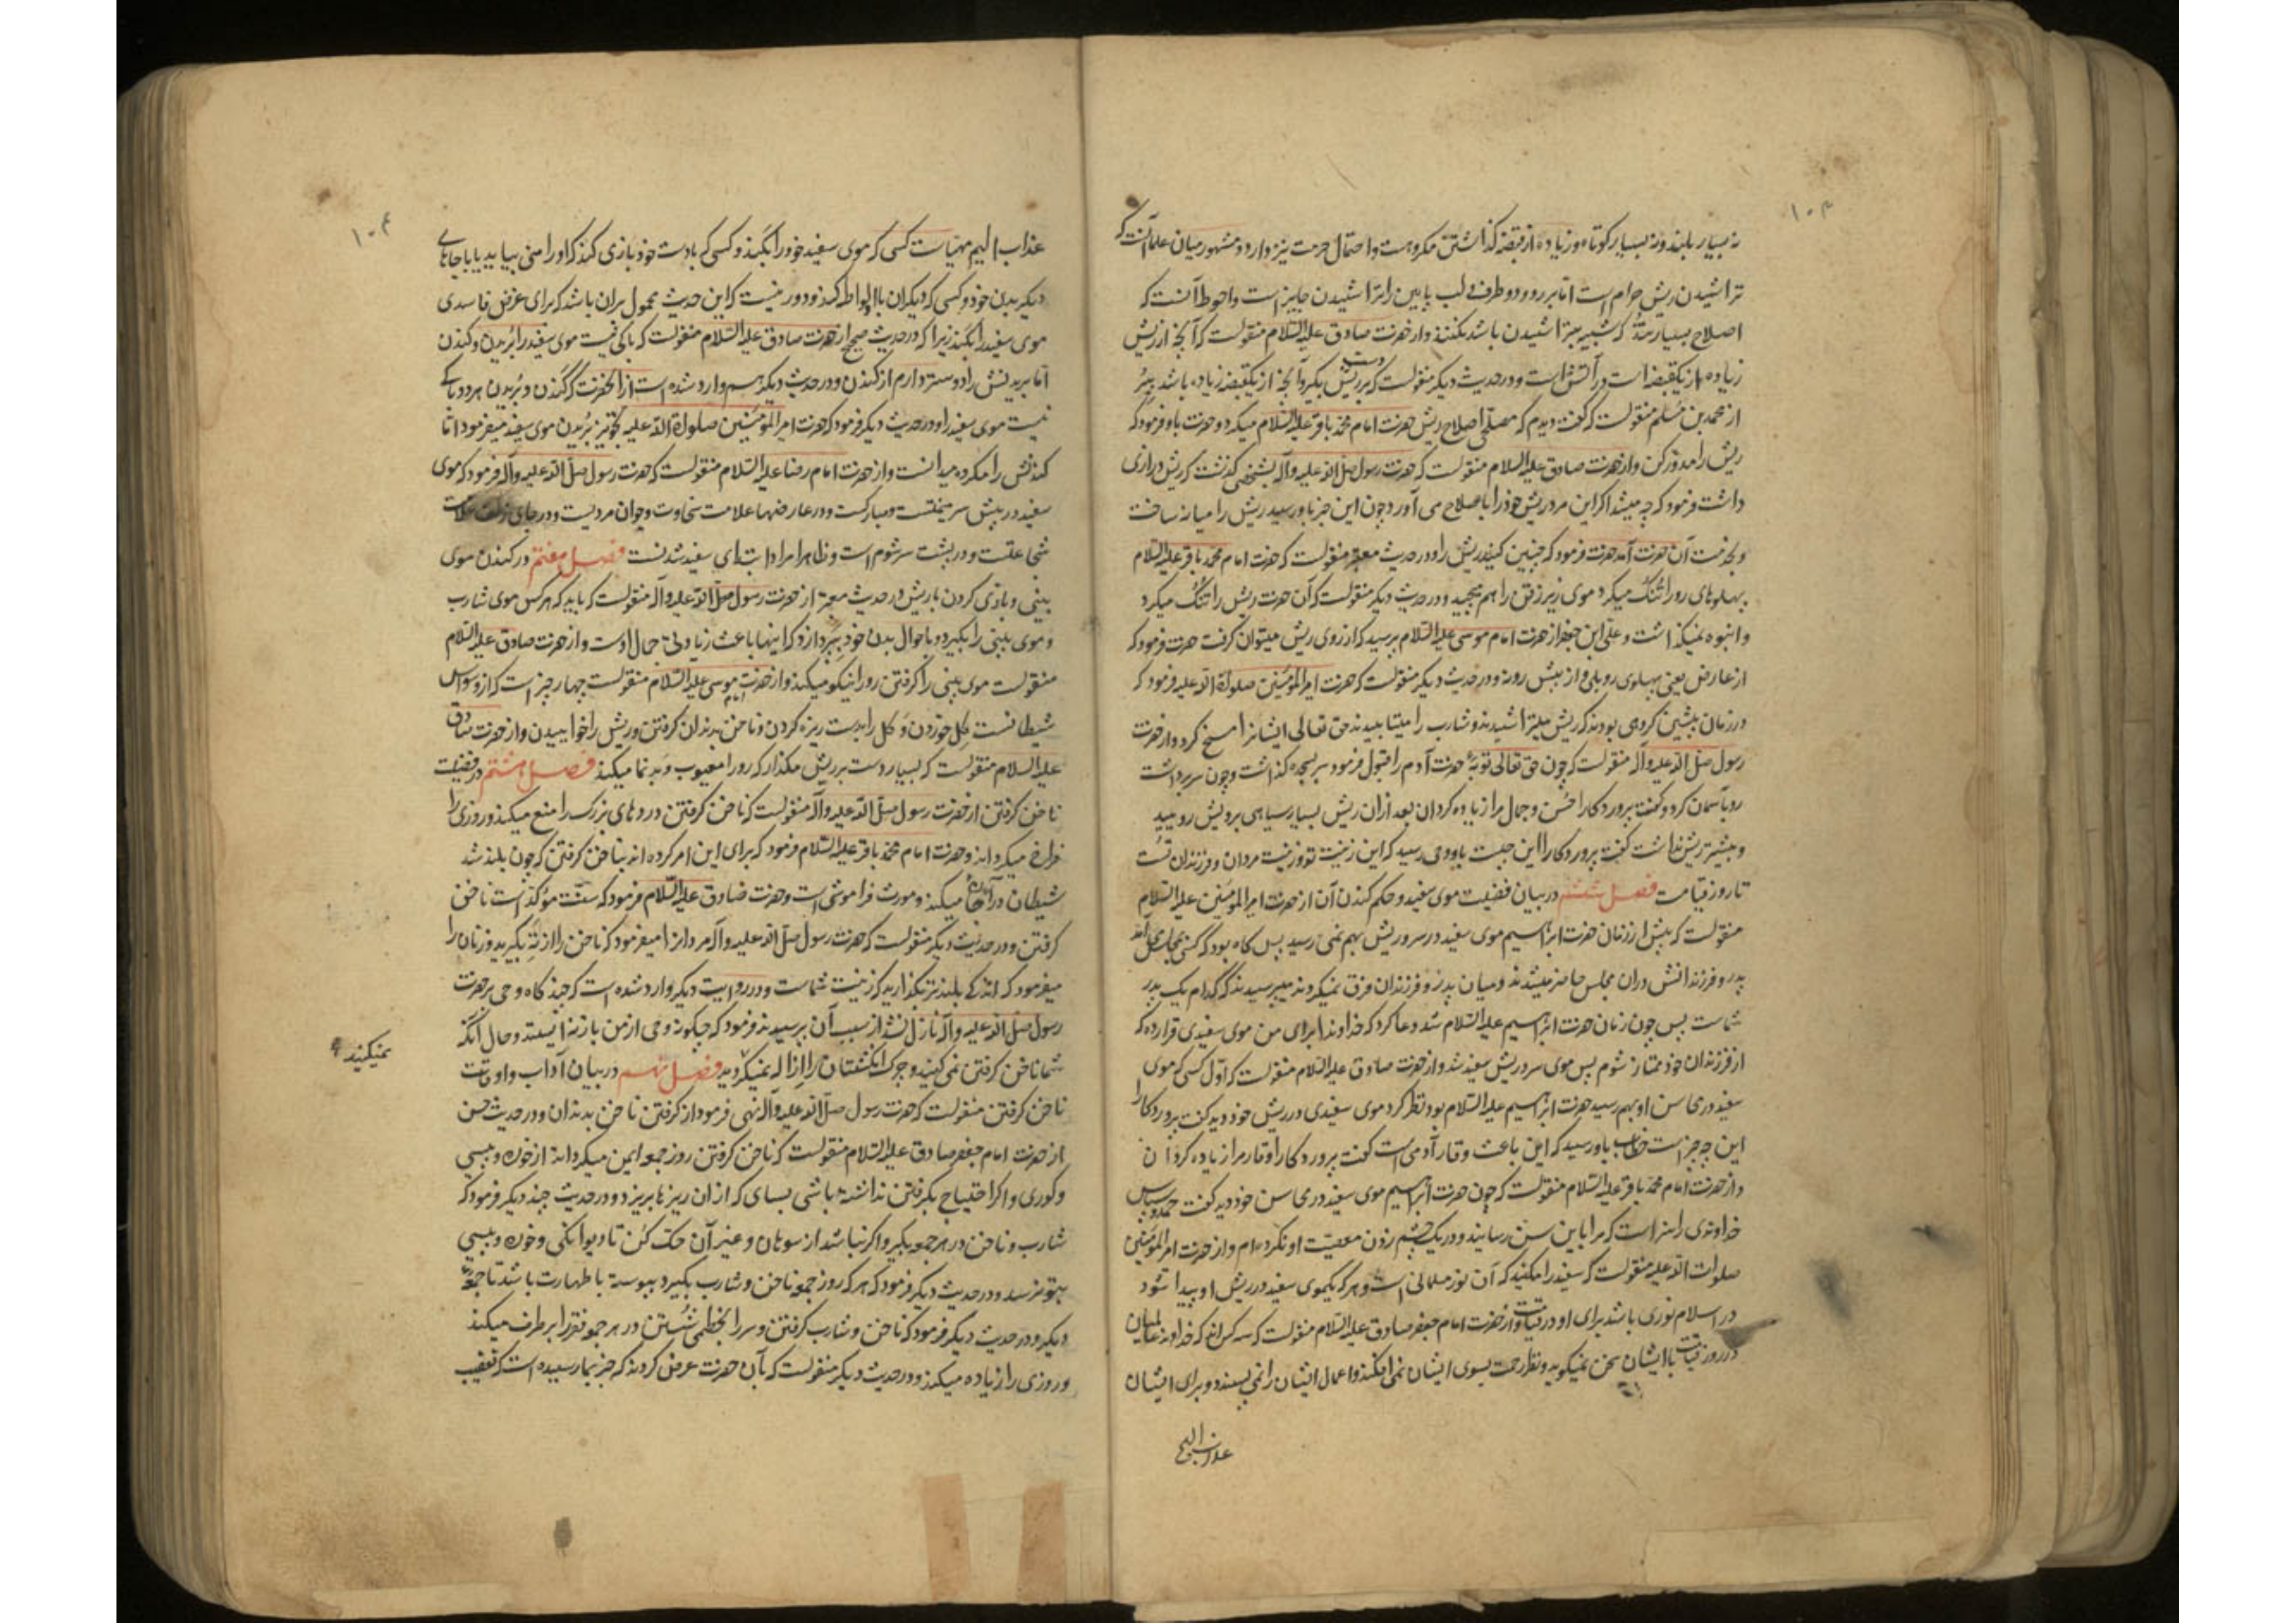 ۱۰۳
نه بسیار بلند و نه بسیار کوتاه و زیاده از قبضه گذاشتن مکروهست و احتمال حرمت نیز دارد و مشهور میان علما آنست که
تراشیدن ریش حرام است اما بر رو و دو طرف لب پایین را تراشیدن جایز است و احوط آنست که
اصلاح بسیار تند که شبیه بتراشیدن باشد نکنند و از حضرت صادق علیه السلام منقولست که آنچه از ریش
زیاده از یکقبضه است در آتش است و در حدیث دیگر منقولست که دست بر ریش بگیر و آنچه از یکقبضه زیاده باشد ببر
از محمد بن مسلم منقولست که گفت دیدم که مصلحی اصلاح ریش حضرت امام محمد باقر علیه السلام میکرد و حضرت باو فرمود که
ریش را مدور کن و از حضرت صادق علیه السلام منقولست که حضرت رسول صلی الله علیه وآله بشخصی گذشت که ریش درازی
داشت فرمود که چه میشد اگر این مرد ریش خود را باصلاح می آورد چون این خبر باو رسید ریش را میانه ساخت
و بخدمت آن حضرت آمد حضرت فرمود که چنین کنید ریش را و در حدیث معتبر منقولست که حضرت امام محمد باقر علیه السلام
پهلوهای رو را تنک میکرد و موی زیر زقن را هم میچید و در حدیث دیگر منقولست که آن حضرت ریش را تنک میکرد
و انبوه نمیگذاشت و علی ابن جعفر از حضرت امام موسی علیه السلام پرسید که از روی ریش میتوان گرفت حضرت فرمود که
از عارض یعنی پهلوی رو بلی و از پیش رو نه و در حدیث دیگر منقولست که حضرت امیر المؤمنین صلوات الله علیه فرمود که
در زمان پیشین گروهی بودند که ریش میتراشیدند و شارب را میتابیدند حق تعالی ایشانرا مسخ کرد و از حضرت
رسول صلی الله علیه وآله منقولست که چون حق تعالی توبهٔ حضرت آدم را قبول فرمود سر بسجده گذاشت و چون سر برداشت
رو بآسمان کرد و گفت پروردگارا حسن و جمال مرا زیاده گردان بعد از آن ریش بسیار سیاهی برویش رویید
و پیشتر ریش نداشت گفت پروردگارا این چیست باو وحی رسید که این زینت تو و زینت مردان و فرزندان تست
تا روز قیامت فصل ششم در بیان فضیلت موی سفید و حکم کندن آن از حضرت امیر المؤمنین علیه السلام
منقولست که پیش از زمان حضرت ابراهیم موی سفید در سر و ریش بهم نمی رسید پس گاه بود که کسی بمجلسی
پدر و فرزندانش در آن مجلس حاضر میشدند و میان پدر و فرزندان فرق نمیکردند میپرسیدند که کدام یک پدر
شماست پس چون زمان حضرت ابراهیم علیه السلام شد دعا کرد که خداوندا برای من موی سفیدی قرار ده که
از فرزندان خود ممتاز شوم پس موی سر و ریش سفید شد و از حضرت صادق علیه السلام منقولست که اول کسی که موی
سفید در محاسن او بهم رسید حضرت ابراهیم علیه السلام بود نظر کرد موی سفیدی در ریش خود دید گفت پروردگارا
این چه چیز است خطاب باو رسید که این باعث وقار آدمی است گفت پروردگارا وقار مرا زیاده گردان
و از حضرت امام محمد باقر علیه السلام منقولست که چون حضرت ابراهیم موی سفید در محاسن خود دید گفت حمد و سپاس
خداوندی را سزاست که مرا باین سن رسانید و در یک چشم زدن معصیت او نکرده ام و از حضرت امیر المؤمنین
صلوات الله علیه منقولست که سفید را مکنید که آن نور مسلمانی است و هر که یکموی سفید در ریش او پیدا شود
در اسلام نوری باشد برای او در قیامت و از حضرت امام جعفر صادق علیه السلام منقولست که سه کس اند که خداوند عالمیان
در روز قیامت با ایشان سخن نمیگوید و نظر رحمت بسوی ایشان نمی افکند و اعمال ایشان را نمی پسندد و برای ایشان
عذاب الیم
۱۰۴
عذاب الیم مهیاست کسی که موی سفید خود را بکند و کسی که بادست خود بازی کند که او را منی بیاید یا با جاهای
دیگر بدن خود و کسی که دیگران با او لواطه کنند و دور نیست که این حدیث محمول بر آن باشد که برای غرض فاسدی
موی سفید را بکند زیرا که در حدیث صحیح از حضرت صادق علیه السلام منقولست که باکی نیست موی سفید را بریدن و کندن
اما بریدنش را دوستر دارم از کندن و در حدیث دیگر هم وارد شده است از آنحضرت که کندن و بریدن هر دو باکی
نیست موی سفید را و در حدیث دیگر فرمود که حضرت امیر المؤمنین صلوات الله علیه تجویز بریدن موی سفید میفرمود اما
کندنش را مکروه میدانست و از حضرت امام رضا علیه السلام منقولست که حضرت رسول صلی الله علیه وآله فرمود که موی
سفید در پیش سر میمنتست و مبارکست و در عارضها علامت سخاوت و جوان مردیست و در جای زلف علامت
شجاعتست و در پشت سر شوم است و ظاهرا مراد ابتدای سفید شدنست فصل هفتم در کندن موی
بینی و بازی کردن با ریش در حدیث معتبر از حضرت رسول صلی الله علیه وآله منقولست که باید که هر کس موی شارب
و موی بینی را بگیرد و باحوال بدن خود بپردازد که اینها باعث زیادتی جمال اوست و از حضرت صادق علیه السلام
منقولست موی بینی را گرفتن رو را نیکو میکند و از حضرت امام موسی علیه السلام منقولست چهار چیز است که از وسواس
شیطانست گل خوردن و گل را بدست ریزه کردن و ناخن بدندان گرفتن و ریش را خواییدن و از حضرت صادق
علیه السلام منقولست که بسیار دست بر ریش مگذار که رو را معیوب و بد نما میکند فصل هشتم در فضیلت
ناخن گرفتن از حضرت رسول صلی الله علیه وآله منقولست که ناخن گرفتن دردهای بزرگ را منع میکند و روزی را
فراخ میگرداند و حضرت امام محمد باقر علیه السلام فرمود که برای این امر کرده اند بناخن گرفتن که چون بلند شد
شیطان در آنجا میکند و مورث فراموشی است و حضرت صادق علیه السلام فرمود که سنت مؤکد است ناخن
گرفتن و در حدیث دیگر منقولست که حضرت رسول صلی الله علیه وآله مردانرا میفرمود که ناخن را از ته بگیرید و زنان را
میفرمود که اندکی بلندتر بگذارید که زینت شماست و در روایت دیگر وارد شده است که چند گاه وحی بر حضرت
رسول صلی الله علیه وآله نازل نشد از سبب آن پرسیدند فرمود که چگونه وحی از من باز نه ایستد و حال آنکه
شما ناخن گرفتن نمی کنید و چرک انگشتان را ازاله نمیکردید فصل نهم در بیان آداب و اوقات
نمیکنید
ناخن گرفتن منقولست که حضرت رسول صلی الله علیه وآله نهی فرمود از گرفتن ناخن بدندان و در حدیث حسن
از حضرت امام جعفر صادق علیه السلام منقولست که ناخن گرفتن روز جمعه ایمن میگرداند از خوره و پیسی
و کوری و اگر احتیاج بگرفتن نداشته باشی بسای که از آن ریزها بریزد و در حدیث چند دیگر فرمود که
شارب و ناخن در هر جمعه بگیر و اگر نباشد از سوهان و غیر آن حک کن تا دیوانگی و خوره و پیسی
بتو نرسد و در حدیث دیگر فرمود که هر که روز جمعه ناخن و شارب بگیرد پیوسته با طهارت باشد تا جمعه
دیگر و در حدیث دیگر فرمود که ناخن و شارب گرفتن و سر را بخطمی شستن در هر جمعه فقر را بر طرف میکند
و روزی را زیاده میکند و در حدیث دیگر منقولست که بآن حضرت عرض کردند که خبر بما رسیده است که تعقیب